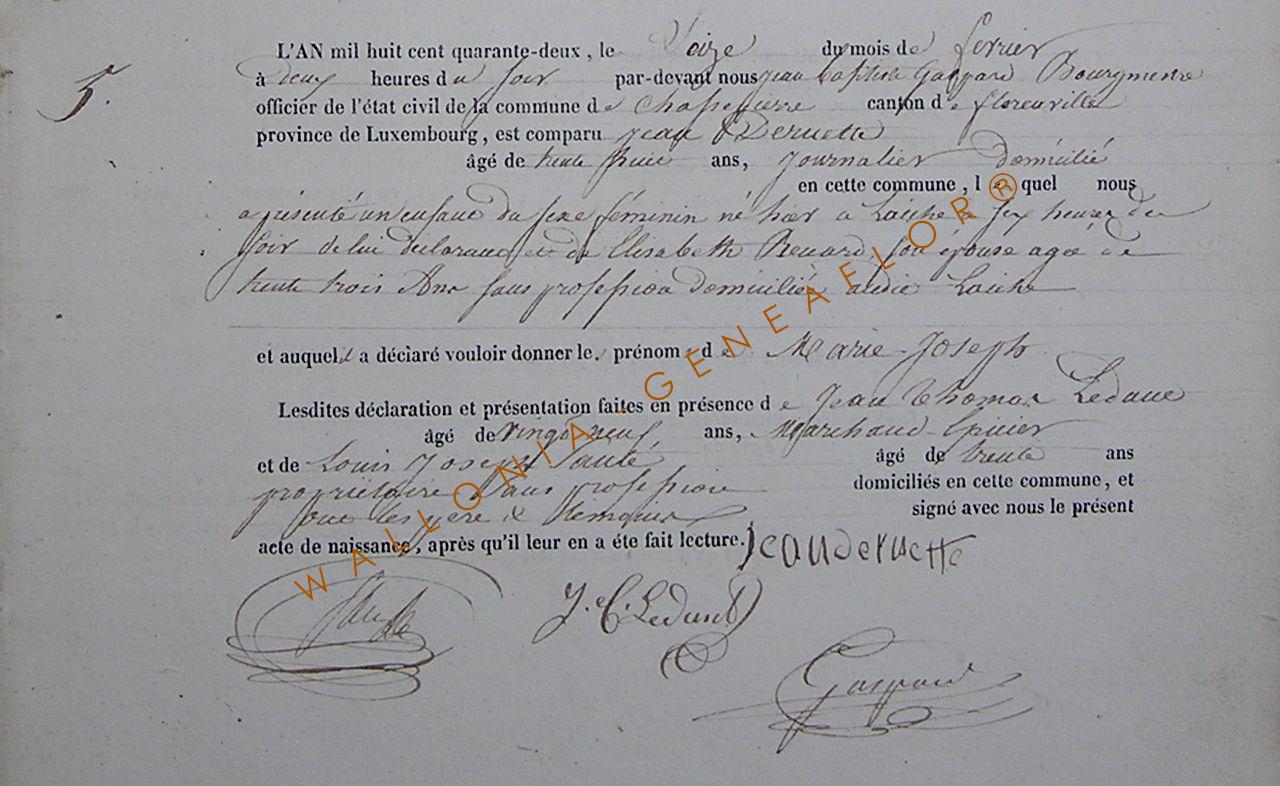 5.
L'AN mil huit cent quarante-deux, le Seize du mois de fevrier
à deux heures du Soir par-devant nous jean baptiste Gaspard Bourgmestre
officier de l'état civil de la commune de Chassepierre canton de florenville
province de Luxembourg, est comparu jean Deruette
âgé de trente ans, Journalier Domicilié
en cette commune, lequel nous
a présenté un enfant du sexe féminin né hier a Laiche a six heures du
soir de lui declarant et de Elisabeth Renard son épouse agée de
trente trois Ans sans profession domiciliée audit Laiche
et auquel il a déclaré vouloir donner le prénom de Marie-Joseph
Lesdites déclaration et présentation faites en présence de Jean Thomas Ledant
âgé de vingt neuf, ans, Marchand Epicier
et de Louis Joseph âgé de trente ans
propriétaire Sans profession domiciliés en cette commune, et
ont les père & temoins signé avec nous le présent
acte de naissance, après qu'il leur en a éte fait lecture. jeanderuette
J. T. Ledant
Gaspard
WALLONIA - GENEAFLOR®